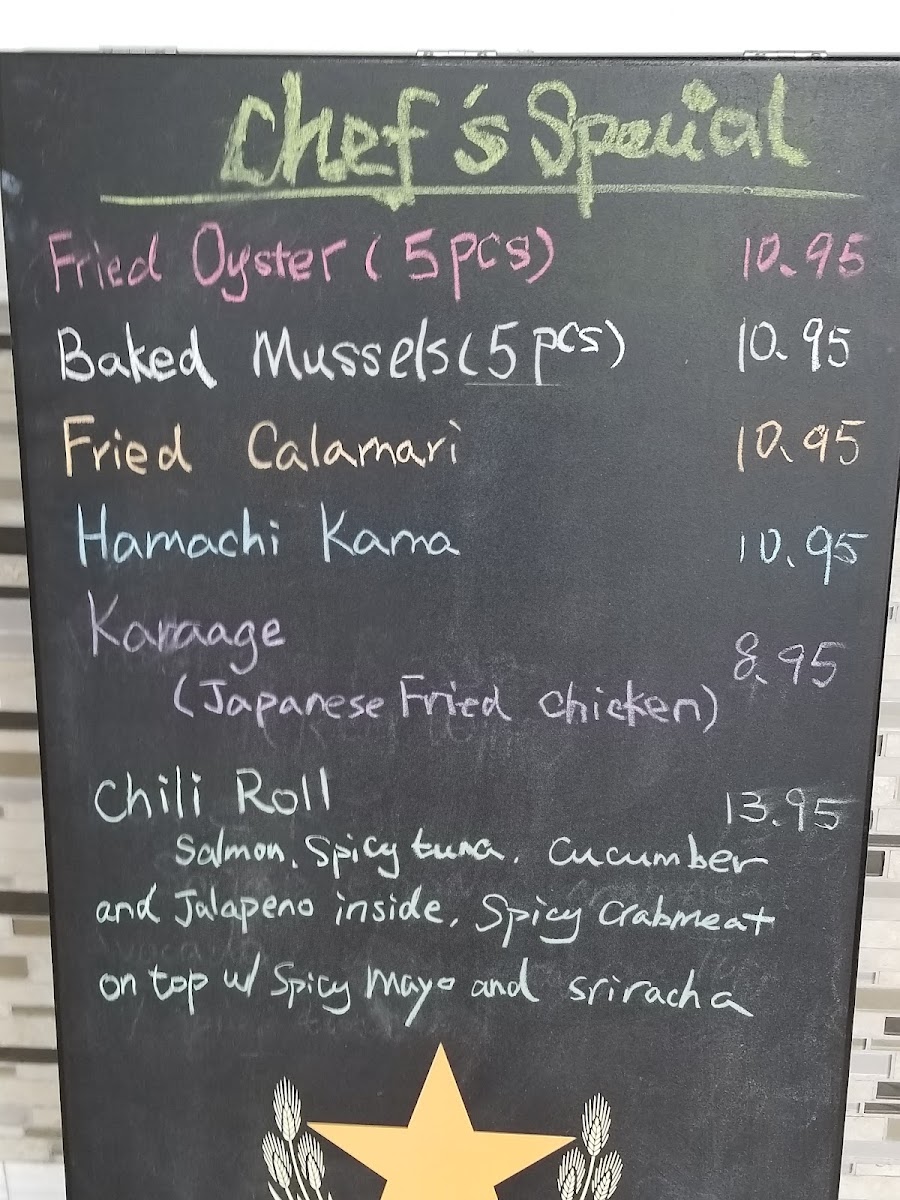 Chef's Special
Fried Oyster (5pcs) 10.95
Baked Mussels (5pcs) 10.95
Fried Calamari 10.95
Hamachi Kama 10.95
Karaage 8.95
(Japanese Fried chicken)
Chili Roll 13.95
Salmon, Spicy tuna, Cucumber
and Jalapeno inside, Spicy Crabmeat
on top w/ Spicy Mayo and sriracha